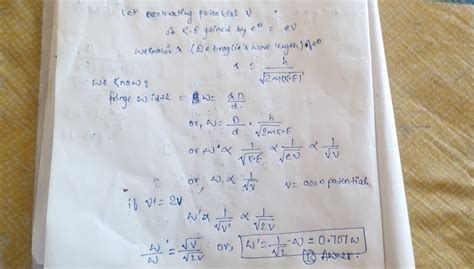 Let accelerating potential V
so K.E gained by e^n = eV
λ (De broglie's wave length) of e^n
λ = h/√2m(K.E)
We know,
fringe width = w = λD/d
or, w = D/d · h/√2mK.E
or, w ∝ 1/√K.E ∝ 1/√eV ∝ 1/√V
or, w ∝ 1/√V V = accn potential
if V' = 2V
w' ∝ 1/√V' ∝ 1/√2V
w'/w = √V/√2V or, w' = 1/√2 · w = 0.707w
Answer.